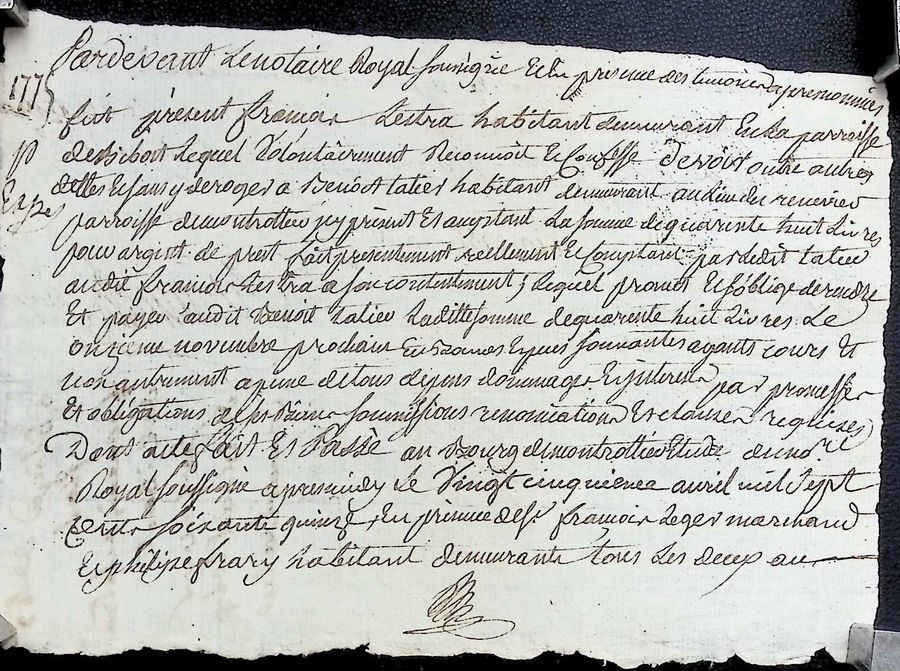 Pardevant Le notaire Royal soussigné Et En presence des temoins apres nommés
1775
fut présent francois Lestra habitant demeurant En La parroisse
de Bibost Lequel Volontairement Reconnoit Et Confesse devoir outre autres
dettes Et sans y deroger a Benoit tatier habitant demeurant au Lieu du
Exped
parroisse de montrottier icy présent Et acceptant La somme de quarente huit Livres
pour argent de prest fait presentement reellement Et Comptant par ledit tatier
audit francois Lestra a son contentement ; Lequel promet Et s'oblige de rendre
Et payer audit Benoit tatier Laditte somme de quarente huit Livres Le
onzieme novembre prochain En Especes sonnantes ayants cours Et
non autrement a peine de tous depens dommages Et interests par promesses
Et obligations de ses Biens soumissions renonciations Et clauses requises
Dont acte fait Et Passé au Bourg de montrottier Etude du no.re
Royal soussigné apres midy Le Vingt cinquieme avril mil sept
cents soixante quinze, En presence de s.r francois Leger marchand
Et philipe frary habitant demeurants tous Les deux au